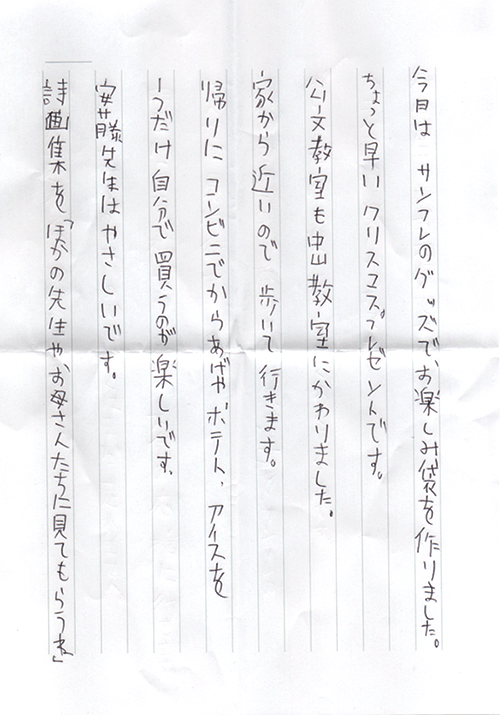 今日は サンフレのグッズで、お楽しみ袋を作りました。
ちょっと早い クリスマスプレゼントです。
公文教室も 中山教室にかわりました。
家から 近いので 歩いて 行きます。
帰りに コンビニでからあげや ポテト、アイスを
1つだけ 自分で 買うのが 楽しいです、
安藤先生は やさしいです。
詩画集を「ほかの先生や お母さんたちに見てもらうね」